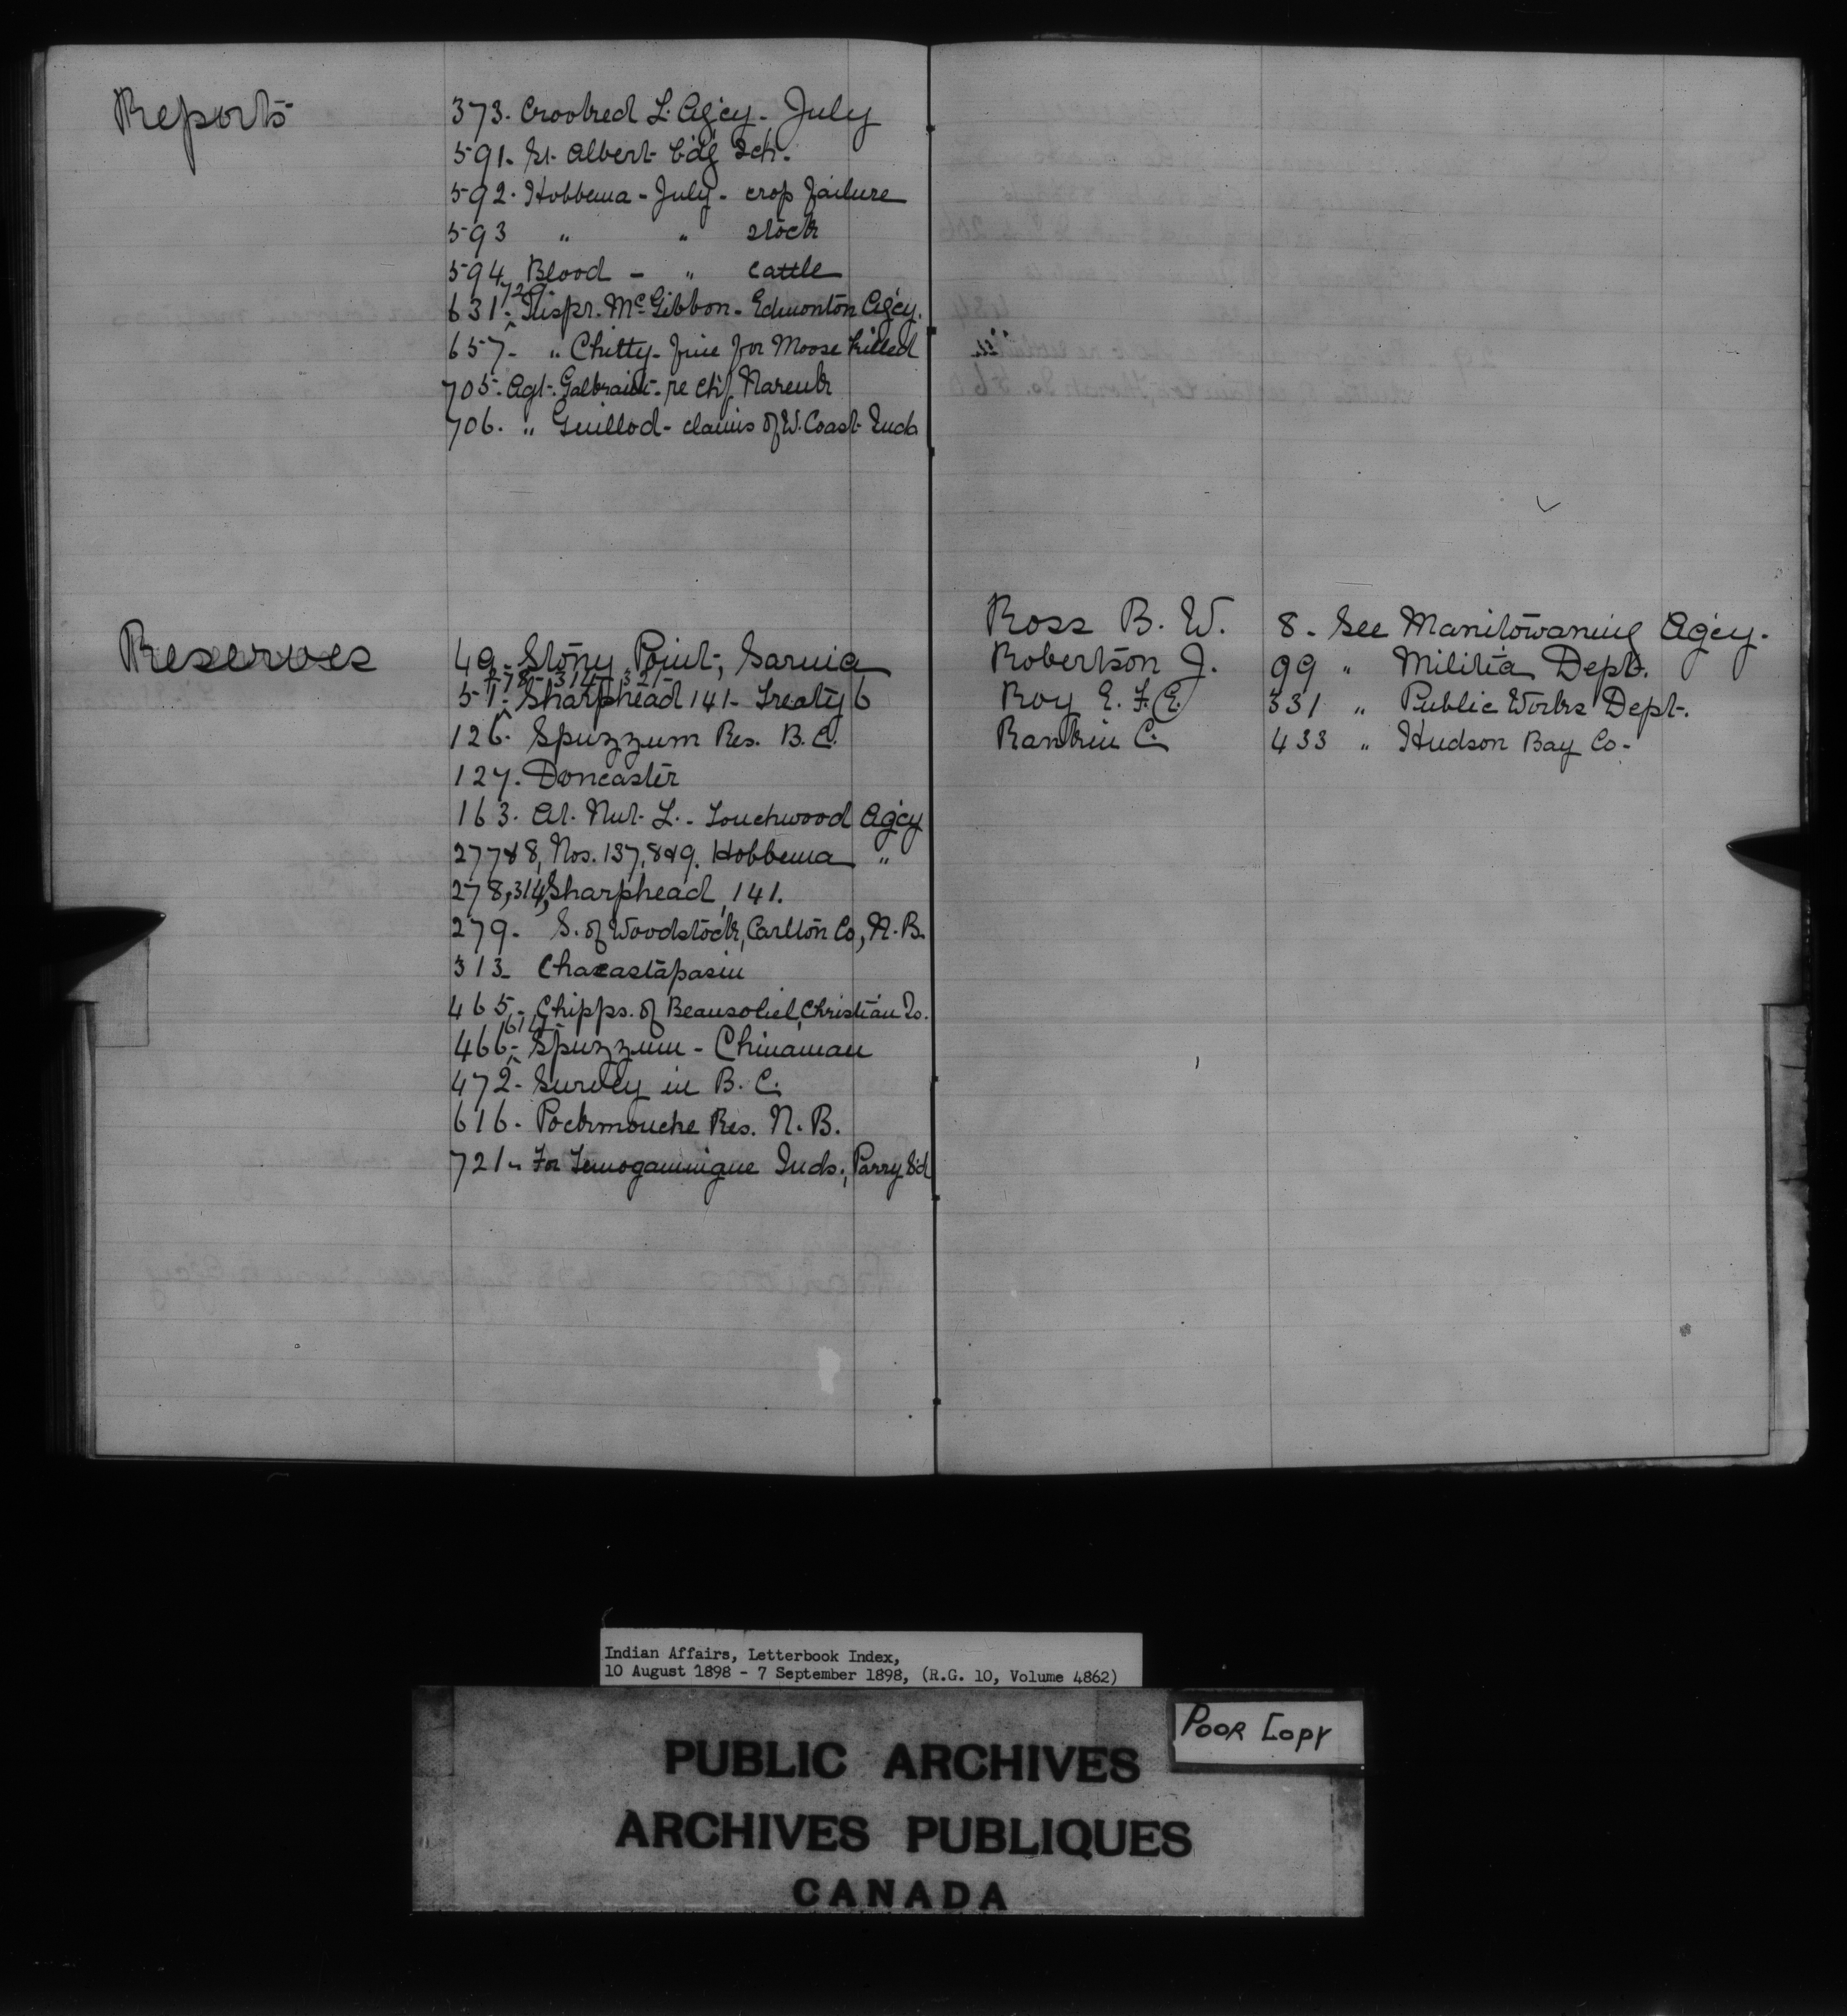 Reports
373. Crooked L. Agcy. July
591. St. Albert b'd'g Sch.
592. Hobbema - July - crop failure
593 " " stock
594 Blood - " cattle
631. 729. Inspr. McGibbon. Edmonton Agcy.
657. " Chitty - fine for Moose killed
705. Agt. Galbraith - re Chf.
706. " Guillod - claims of W. Coast Inds
Reserves
49. Stony Point, Sarnia
278 - 314 - 321 -
51. Sharphead 141 - Treaty 6
126. Spuzzum Res. B.C.
127. Doncaster
163. At. Nut. L. - Touchwood Agcy
277 & 8, Nos. 137, 8 & 9. Hobbema "
278, 314, Sharphead, 141.
279. S. of Woodstock, Carlton Co, N.B.
313 Chacastapasin
465. Chipps. of Beausoliel, Christian Is.
614
466. Spuzzum - Chinaman
472. Survey in B.C.
616. Pockmouche Res. N.B.
721. For Temogamingue Inds., Parry S'd
Ross B. W. 8. See Manitowaning Agcy.
Robertson J. 99 " Militia Dept.
Roy E. F. E. 331 " Public Works Dept.
Rankin C. 433 " Hudson Bay Co.
Indian Affairs, Letterbook Index,
10 August 1898 - 7 September 1898, (R.G. 10, Volume 4862)
POOR COPY
PUBLIC ARCHIVES
ARCHIVES PUBLIQUES
CANADA